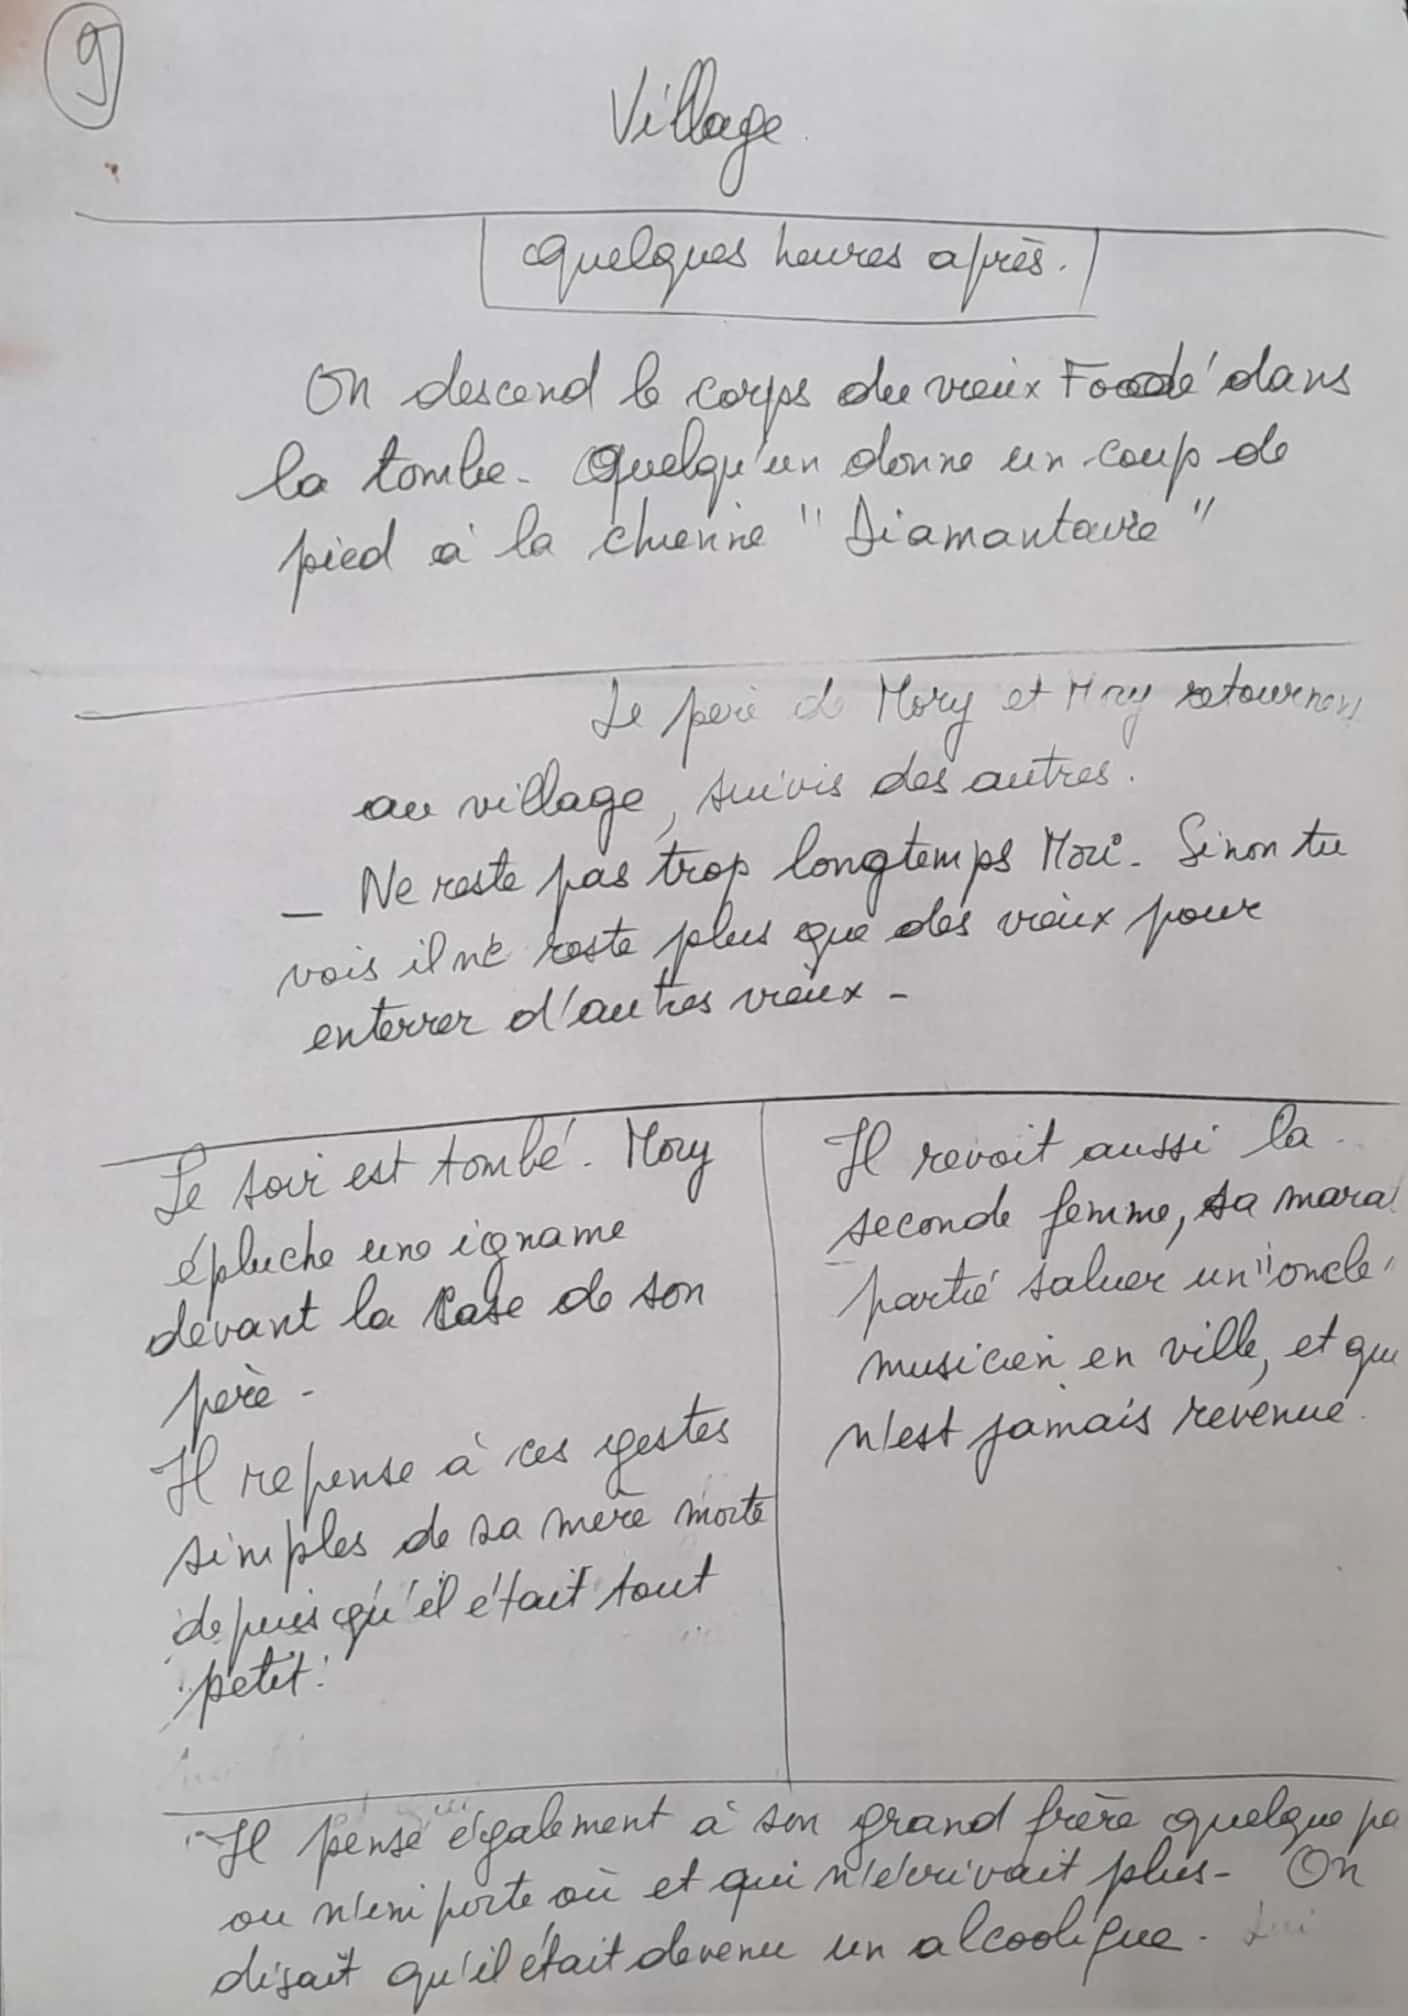 9
Village
Quelques heures après.
On descend le corps du vieux Foodé dans
la tombe. Quelqu'un donne un coup de
pied à la chienne "Diamantaire"
Le père de Mory et Mory retournent
au village, suivis des autres.
_ Ne reste pas trop longtemps Mori. Sinon tu
vois il ne reste plus que des vieux pour
enterrer d'autres vieux -
Le soir est tombé. Mory
épluche une igname
devant la case de son
père -
Il repense à ces gestes
simples de sa mère morte
depuis qu'il était tout
petit.
Il revoit aussi la
seconde femme, sa mara
partie saluer un "oncle"
musicien en ville, et qui
n'est jamais revenue.
Il pense également à son grand frère quelque pa
ou n'importe où et qui n'écrivait plus - On
disait qu'il était devenu un alcoolique. Lui